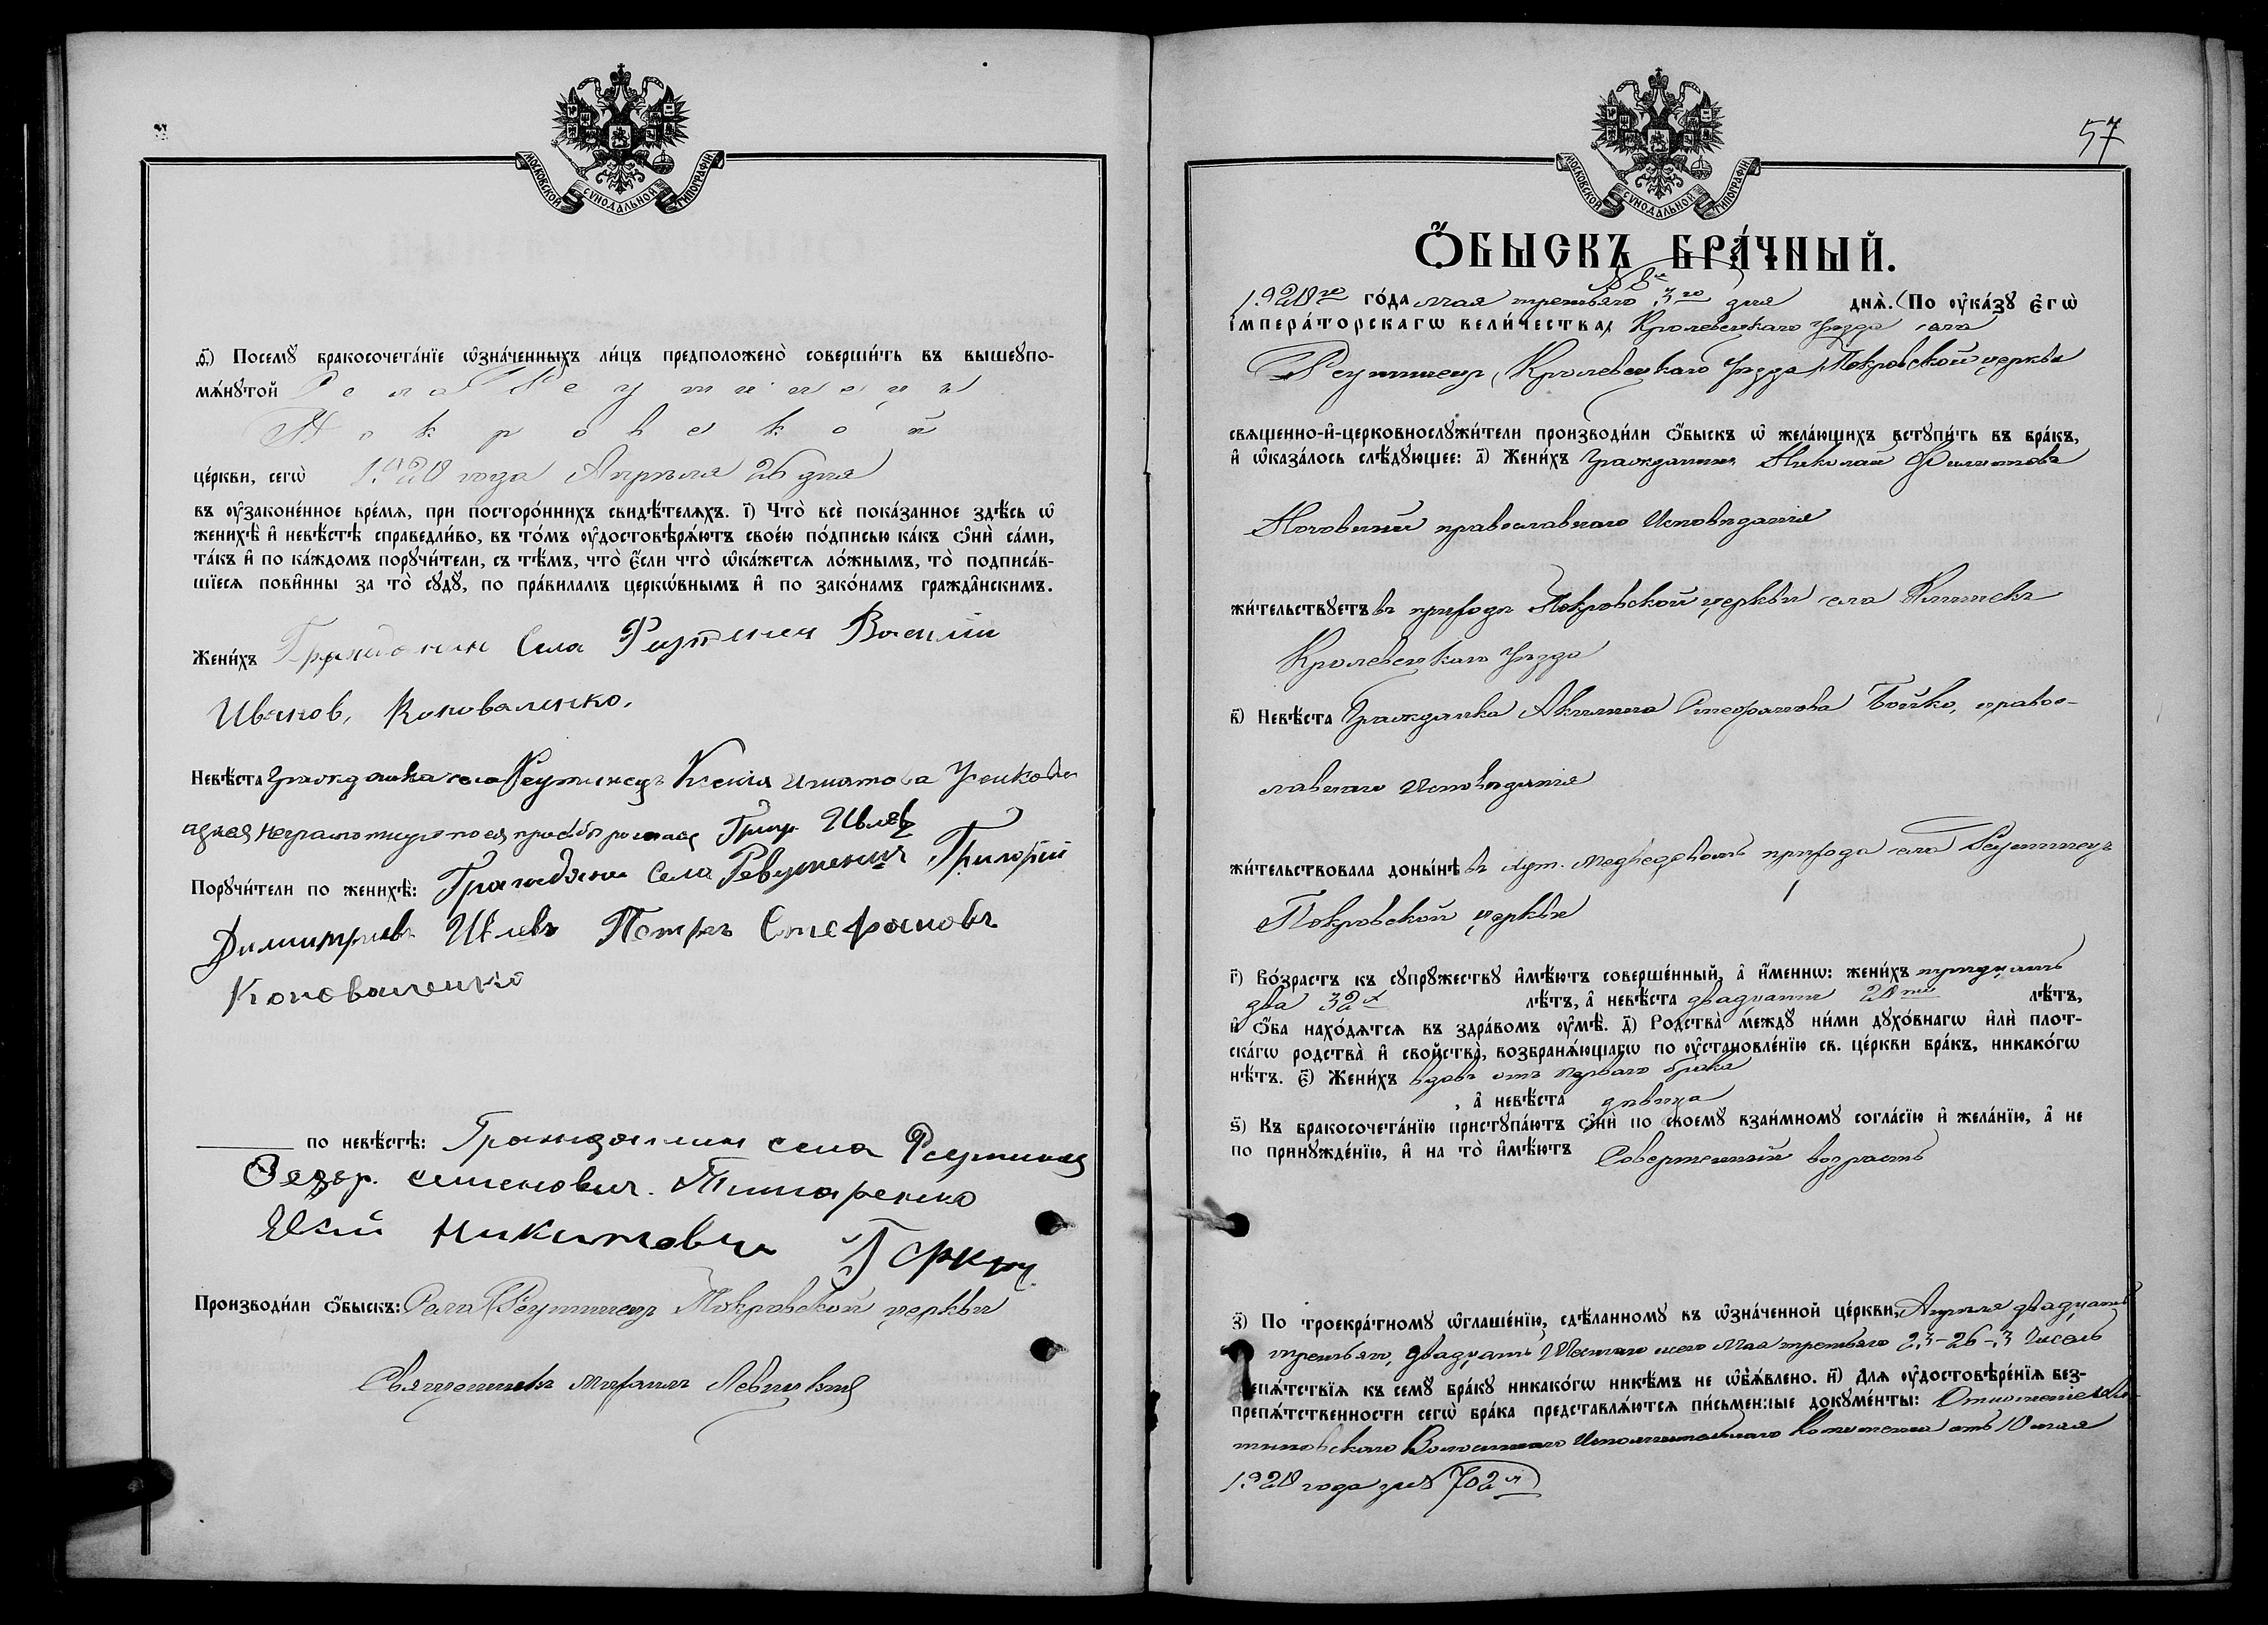 МОСКОВСКОЙ СѴНОДАЛЬНОЙ ТИПОГРАФІИ
ѳ҃) Посемꙋ бракосочета́нїе ѡ҆зна́ченныхъ ли́цъ предположено̀ соверши́ть въ вышеꙋпо-
мѧ́нꙋтой Села Реутинецъ
Покровской
це́ркви, сегѡ̀ 1920 года Апрѣля 26 дня
въ ᲂу҆законе́нное вре́мѧ, при посторо́ннихъ свидѣ́телѧхъ. і҃) Что̀ всѐ пока́занное здѣ́сь ѡ҆
женихѣ̀ и҆ невѣ́стѣ справедли́во, въ то́мъ ᲂу҆достовѣрѧ́ютъ свое́ю по́дписью ка́къ ѻ҆нѝ са́ми,
та́къ и҆ по ка́ждомъ порꙋчи́тели, съ тѣ́мъ, что̀ є҆́сли что̀ ѡ҆ка́жетсѧ ло́жнымъ, то̀ подписа́в-
шїесѧ пови́нны за то̀ сꙋдꙋ̀, по пра́виламъ церкѡ́внымъ и҆ по зако́намъ гражда́нскимъ.
Жени́хъ Гражданин Села Реутинец Василий
Иванов, Коноваленко.
Невѣ́ста Гражданка села Реутинецъ Ксенія Игнатова
неграмотнуе по ея просьбѣ Григ. Ивлевъ
Порꙋчи́тели по женихѣ̀: Граждани Села Ревутенец Григорій
Димитриевъ Ивлевъ Петръ Стефановъ
Коноваленко
по невѣ́стѣ: Гражданини села Реутинец
Ѳедор. семенович. Титаренко
Никитовичъ
Производи́ли ѻ҆́быскъ: Села Реутинецъ Покровской церкви
Священникъ Михаилъ Левицкій
57
МОСКОВСКОЙ СѴНОДАЛЬНОЙ ТИПОГРАФІИ
Ѻ҆́БЫСКЪ БРА́ЧНЫЙ.
№ 8й
1920го го́да мая третьяго 3го дня днѧ̀. (По ᲂу҆ка́зꙋ є҆гѡ̀
і҆мпера́торскагѡ вели́чества) Кролевецкаго Уѣзда села
Реутинецъ, Кролевецкаго Уѣзда Покровской церкви
свѧщенно-и҆-церковнослꙋжи́тели производи́ли ѻ҆́быскъ ѡ҆ жела́ющихъ встꙋпи́ть въ бра́къ,
и҆ ѡ҆каза́лось слѣ́дꙋющее: а҃) Жени́хъ Гражданинъ Николай Филиповъ
православнаго Исповѣданія
жи́тельствꙋетъ въ приходѣ Покровской церкви села Клишекъ
Кролевецкаго Уѣзда
в҃) Невѣ́ста Гражданка Акилина Стефанова Бойко, право-
славнаго Исповѣданія
жи́тельствовала доны́нѣ въ хут. Медведевомъ прихода села Реутинецъ
Покровской церкви
г҃) Во́зрастъ къ сꙋпрꙋ́жествꙋ и҆мѣ́ютъ соверше́нный, а҆ и҆́меннѡ: жени́хъ тридцать
два 32х лѣ́тъ, а҆ невѣ́ста двадцати 20ти лѣ́тъ,
и҆ ѻ҆́ба нахо́дѧтсѧ въ здра́вомъ ᲂу҆мѣ̀. д҃) Родства̀ междꙋ̀ ни́ми дꙋхо́внагѡ и҆лѝ плот-
ска́гѡ родства̀ и҆ свойства̀, возбранѧ́ющагѡ по ᲂу҆становле́нїю св. це́ркви бра́къ, никако́гѡ
нѣ́тъ. є҃) Жени́хъ вдовъ отъ перваго брака
, а҆ невѣ́ста дѣвица
ѕ҃) Къ бракосочета́нїю пристꙋпа́ютъ ѻ҆нѝ по своемꙋ̀ взаи́мномꙋ согла́сїю и҆ жела́нїю, а҆ не
по принꙋжде́нїю, и҆ на то̀ и҆мѣ́ютъ Совершенный возрастъ
з҃) По троекра́тномꙋ ѡ҆глаше́нїю, сдѣ́ланномꙋ въ ѡ҆зна́ченной це́ркви, Апрѣля двадцать
третьяго, двадцать Шестаго и Мая третьяго 23-26-3 Чиселъ
препѧ́тствїѧ къ семꙋ̀ бра́кꙋ никако́гѡ никѣ́мъ не ѡ҆бъѧ́влено. и҃) Для ᲂу҆достовѣре́нїѧ без-
препѧ́тственности сегѡ̀ бра́ка представлѧ́ютсѧ пи́сьменные докꙋме́нты: Отношеніе
Волостнаго Исполнительнаго Комитета отъ 10 мая
1920 года за № 702м